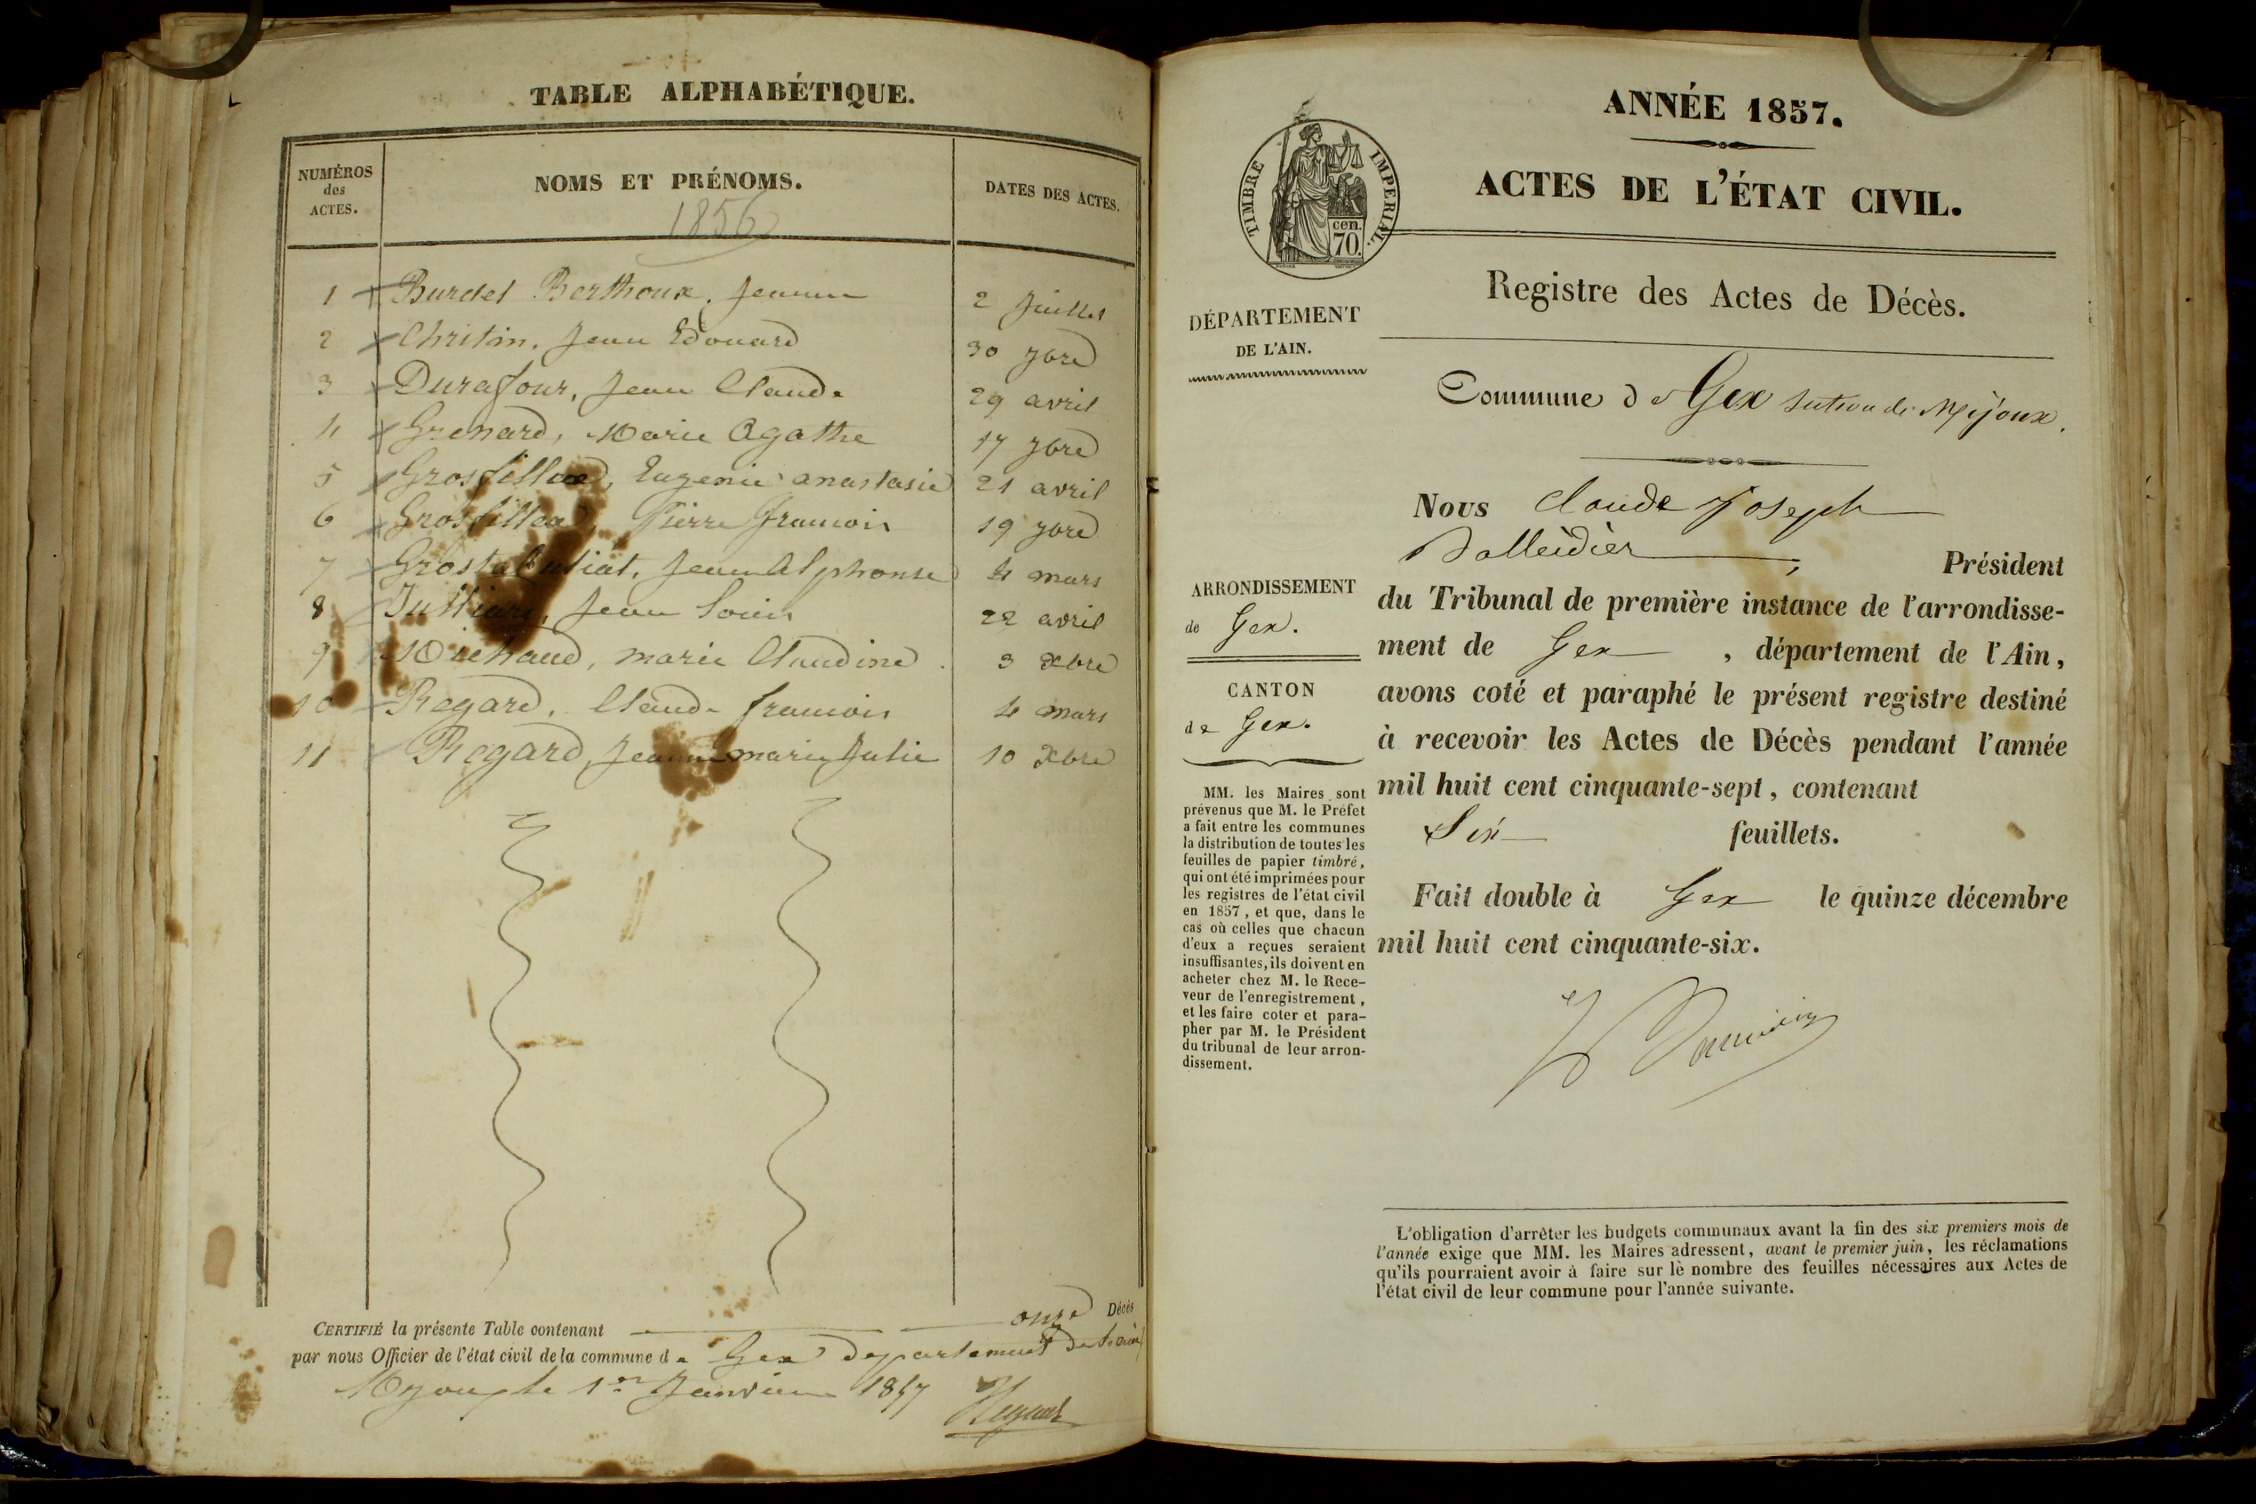 TABLE ALPHABÉTIQUE.
NUMÉROS des ACTES.
NOMS ET PRÉNOMS.
1856
DATES DES ACTES.
1 Burdet Berthoux, Jeanne 2 Juillet
2 Christin, Jean Edouard 30 7bre
3 Durafour, Jean Claude 29 avril
4 Grenard, Marie Agathe 17 7bre
5 Grosfillex, Eugenie anastasie 21 avril
6 Grosfillex, Pierre françois 19 7bre
7 Jean Alphonse 4 mars
8 Jean Louis 22 avril
9 Michaud, marie Claudine 3 Xbre
10 Regard, Claude françois 4 mars
11 Regard, Jeanne marie Julie 10 Xbre
CERTIFIÉ la présente Table contenant onze Décès
par nous Officier de l'état civil de la commune de Gex departement de l'ain
Mijoux le 1er Janvier 1857
Regard
ANNÉE 1857.
ACTES DE L'ÉTAT CIVIL.
TIMBRE IMPERIAL.
cen.
70.
Registre des Actes de Décès.
DÉPARTEMENT
DE L'AIN.
Commune de Gex section de Mijoux.
Nous Claude Joseph
Président
du Tribunal de première instance de l'arrondisse-
ment de Gex, département de l'Ain,
avons coté et paraphé le présent registre destiné
à recevoir les Actes de Décès pendant l'année
mil huit cent cinquante-sept, contenant
Six feuillets.
Fait double à Gex le quinze décembre
mil huit cent cinquante-six.
ARRONDISSEMENT
de Gex.
CANTON
de Gex.
MM. les Maires sont
prévenus que M. le Préfet
a fait entre les communes
la distribution de toutes les
feuilles de papier timbré,
qui ont été imprimées pour
les registres de l'état civil
en 1857, et que, dans le
cas où celles que chacun
d'eux a reçues seraient
insuffisantes, ils doivent en
acheter chez M. le Rece-
veur de l'enregistrement,
et les faire coter et para-
pher par M. le Président
du tribunal de leur arron-
dissement.
L'obligation d'arrêter les budgets communaux avant la fin des six premiers mois de
l'année exige que MM. les Maires adressent, avant le premier juin, les réclamations
qu'ils pourraient avoir à faire sur le nombre des feuilles nécessaires aux Actes de
l'état civil de leur commune pour l'année suivante.